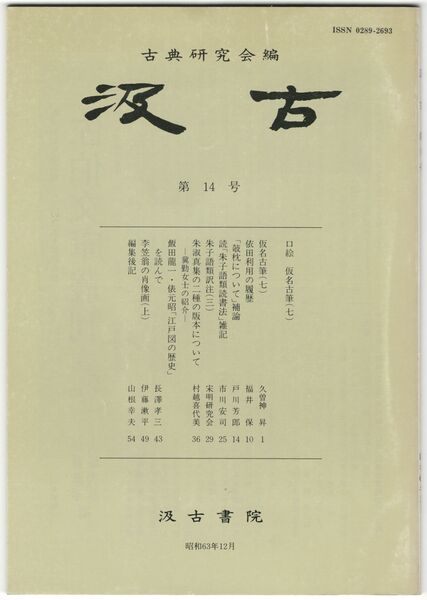 ISSN 0289-2693
古典研究会編
汲古
第14号
口絵 仮名古筆(七)
仮名古筆(七) 久曽神昇 1
依田利用の履歴 福井保 10
「攲枕について」補論 戸川芳郎 14
読「朱子語類読書法」雑記 市川安司 25
朱子語類訳注(三) 宋明研究会 29
朱淑真集の二種の版本について
―冀勤女士の紹介― 村越喜代美 36
飯田龍一・俵元昭「江戸図の歴史」
を読んで 長澤孝三 43
李笠翁の肖像画(上) 伊藤漱平 49
編集後記 山根幸夫 54
汲古書院
昭和63年12月